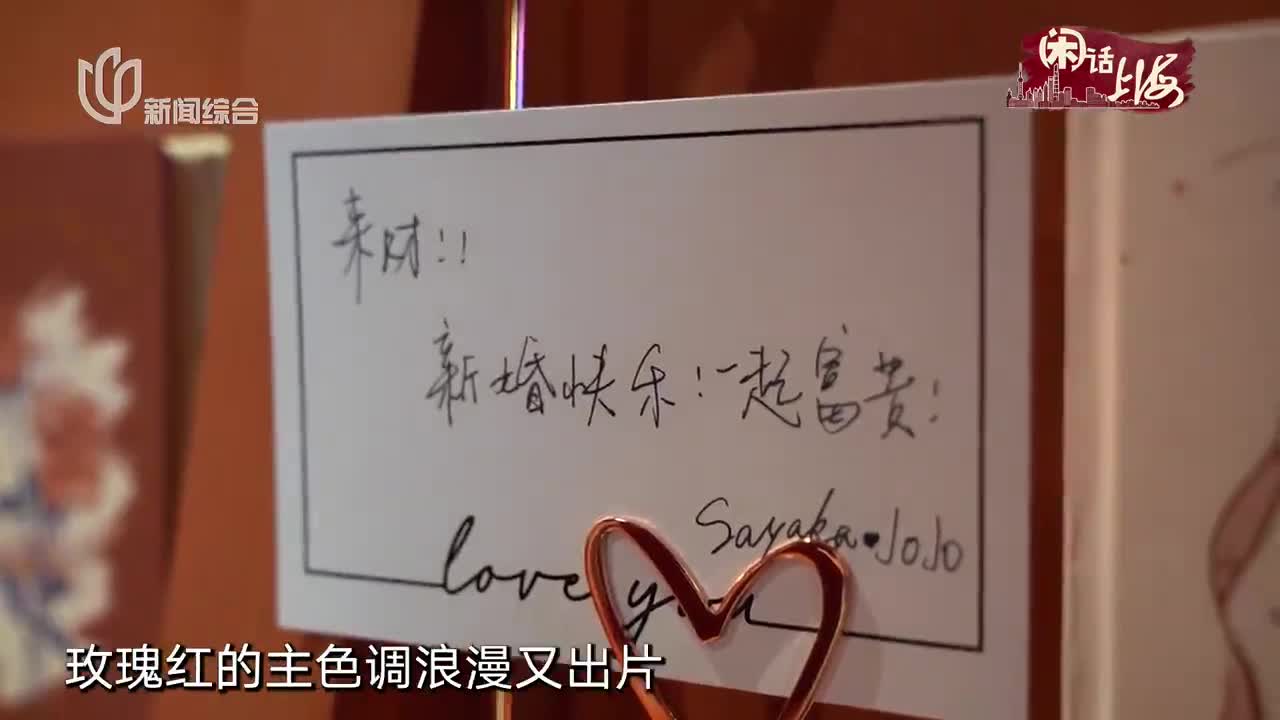 新闻综合
闲话上海
来财！！
新婚快乐！一起富贵！
Sayaka♥JoJo
love you
玫瑰红的主色调浪漫又出片